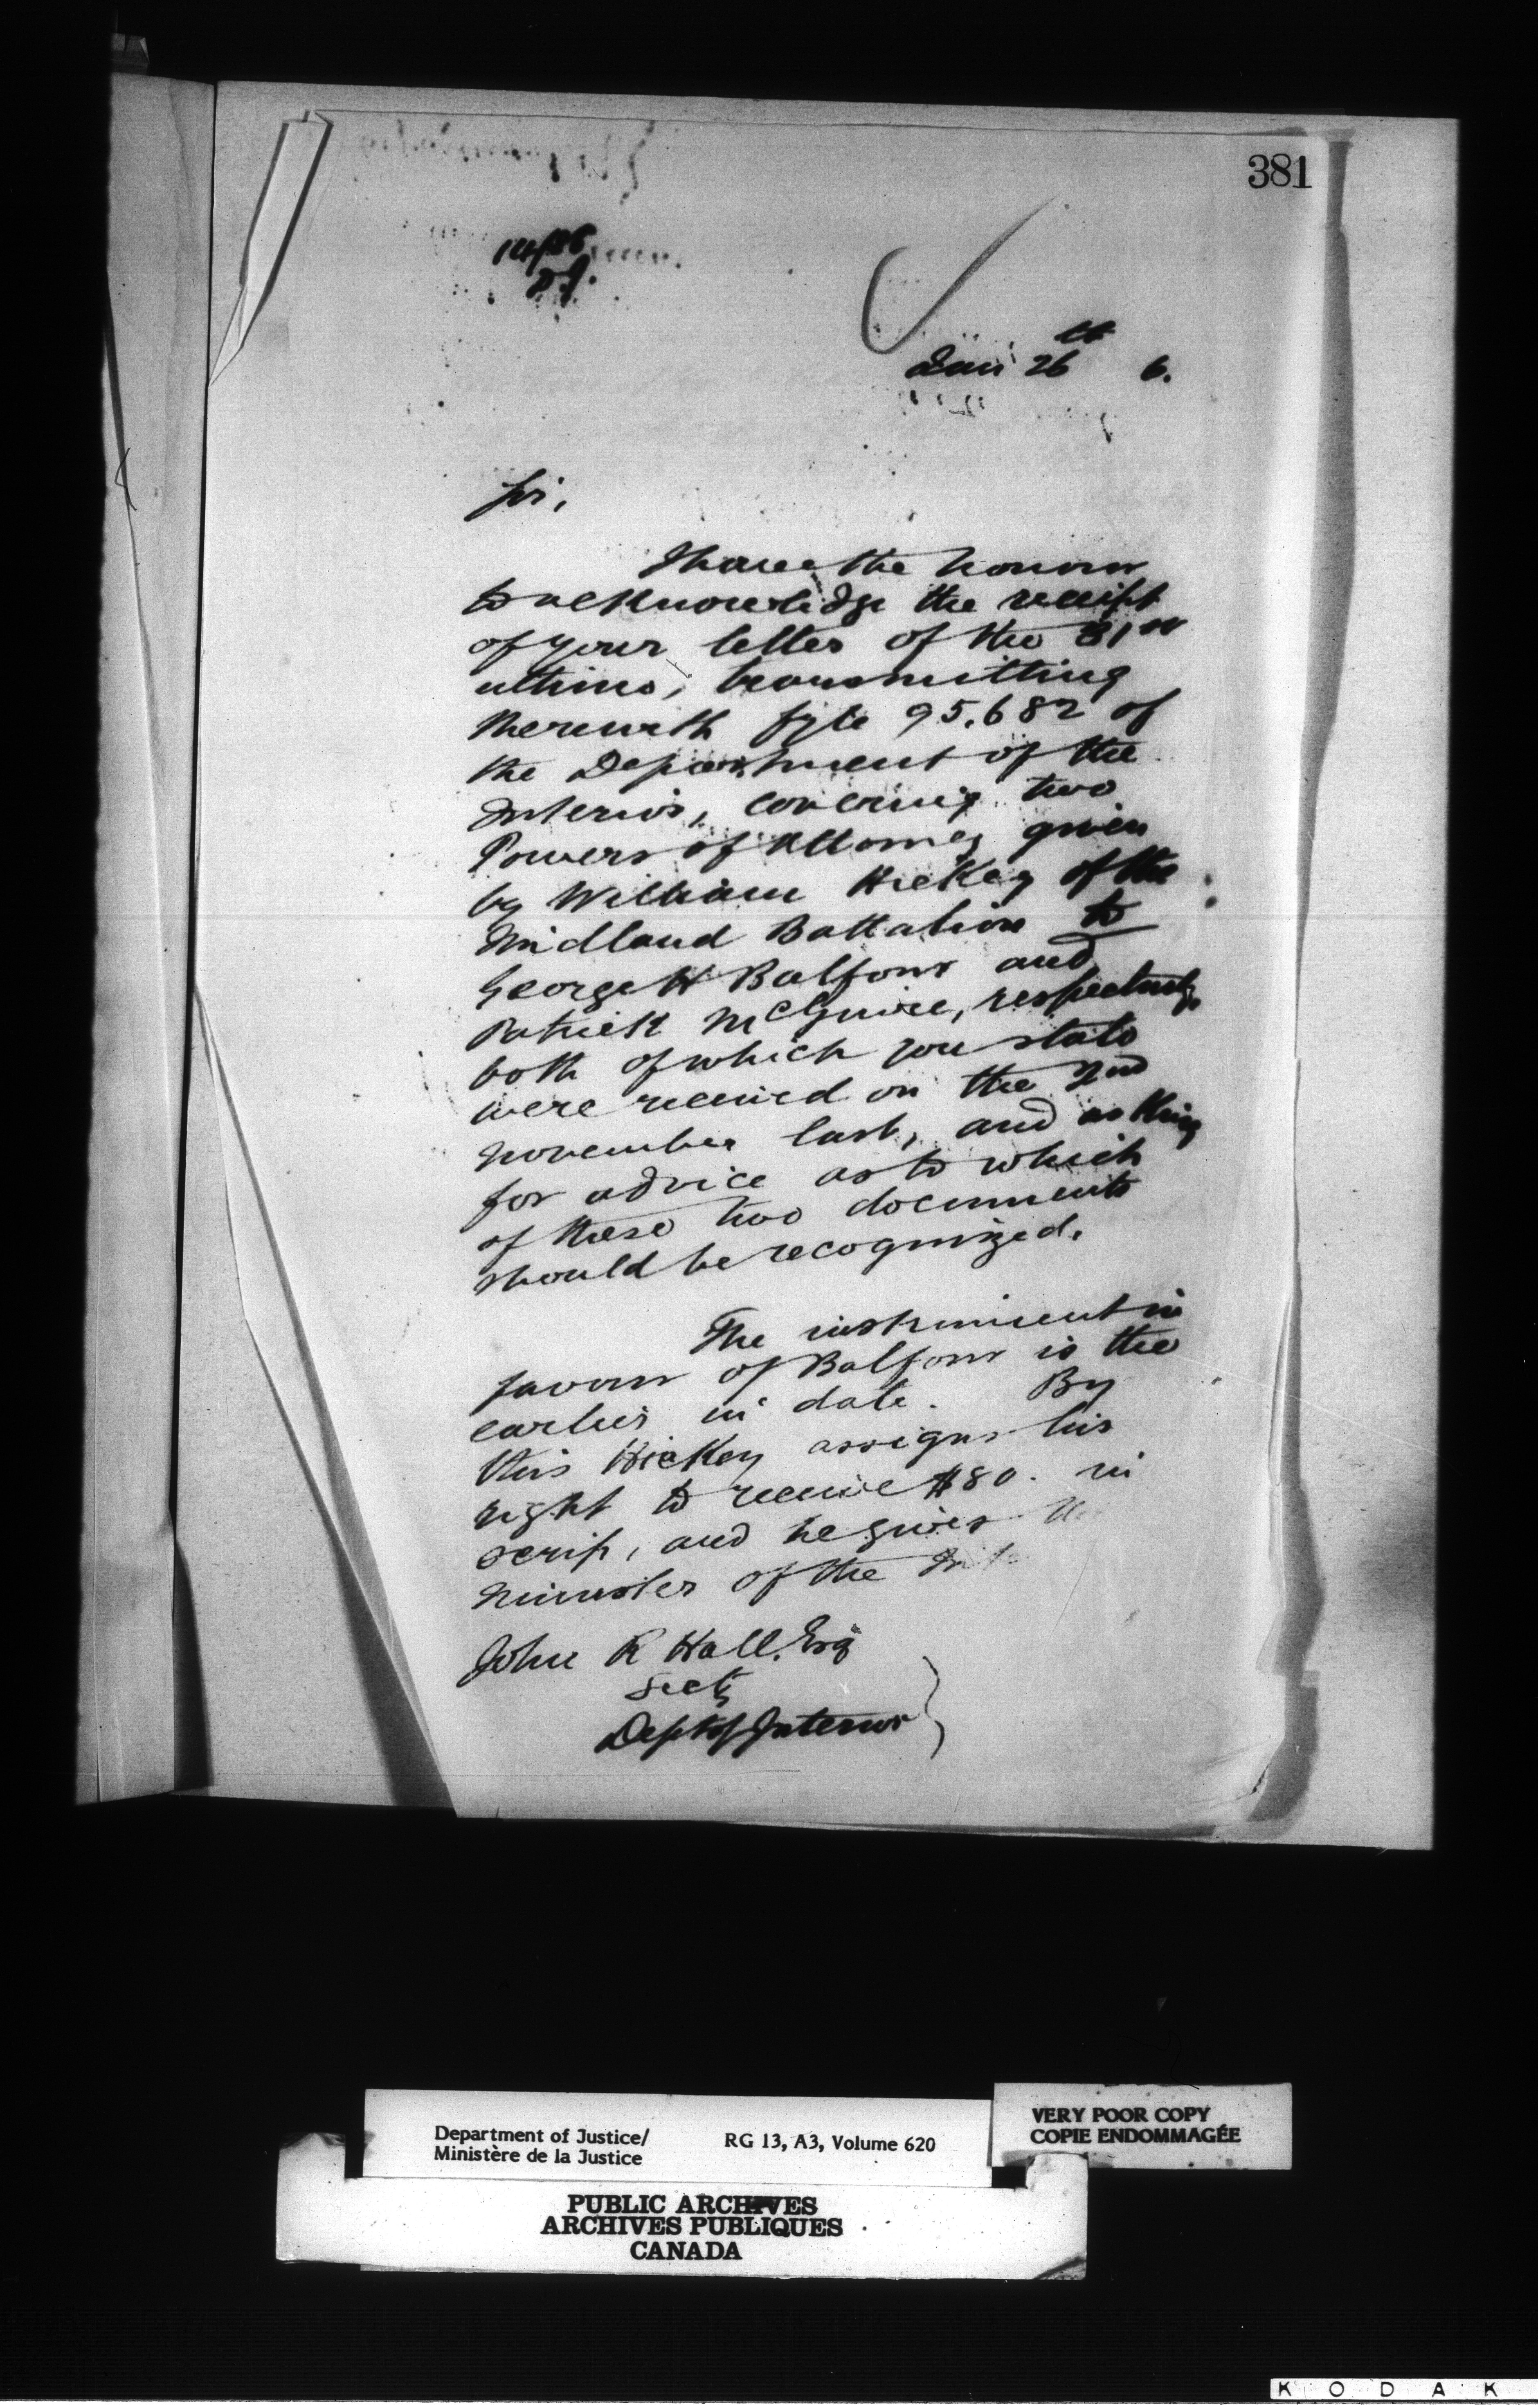 381
14/86
D.J.
Jan 26th 6.
Sir,
I have the honour
to acknowledge the receipt
of your letter of the 31st
ultimo, transmitting
therewith fyle 95.682 of
the Department of the
Interior, covering two
Powers of Attorney given
by William Hickey of the
Midland Battalion to
George H Balfour and
Patrick McGuire, respectively,
both of which you state
were received on the 2nd
November last, and asking
for advice as to which
of these two documents
should be recognized.
The instrument in
favour of Balfour is the
earlier in date. By
this Hickey assigns his
right to receive $80. in
scrip, and he gives the
Minister of the Inte
John R Hall. Esq
Secty
Dept of Interior
Department of Justice/
Ministère de la Justice
RG 13, A3, Volume 620
VERY POOR COPY
COPIE ENDOMMAGÉE
PUBLIC ARCHIVES
ARCHIVES PUBLIQUES
CANADA
KODAK